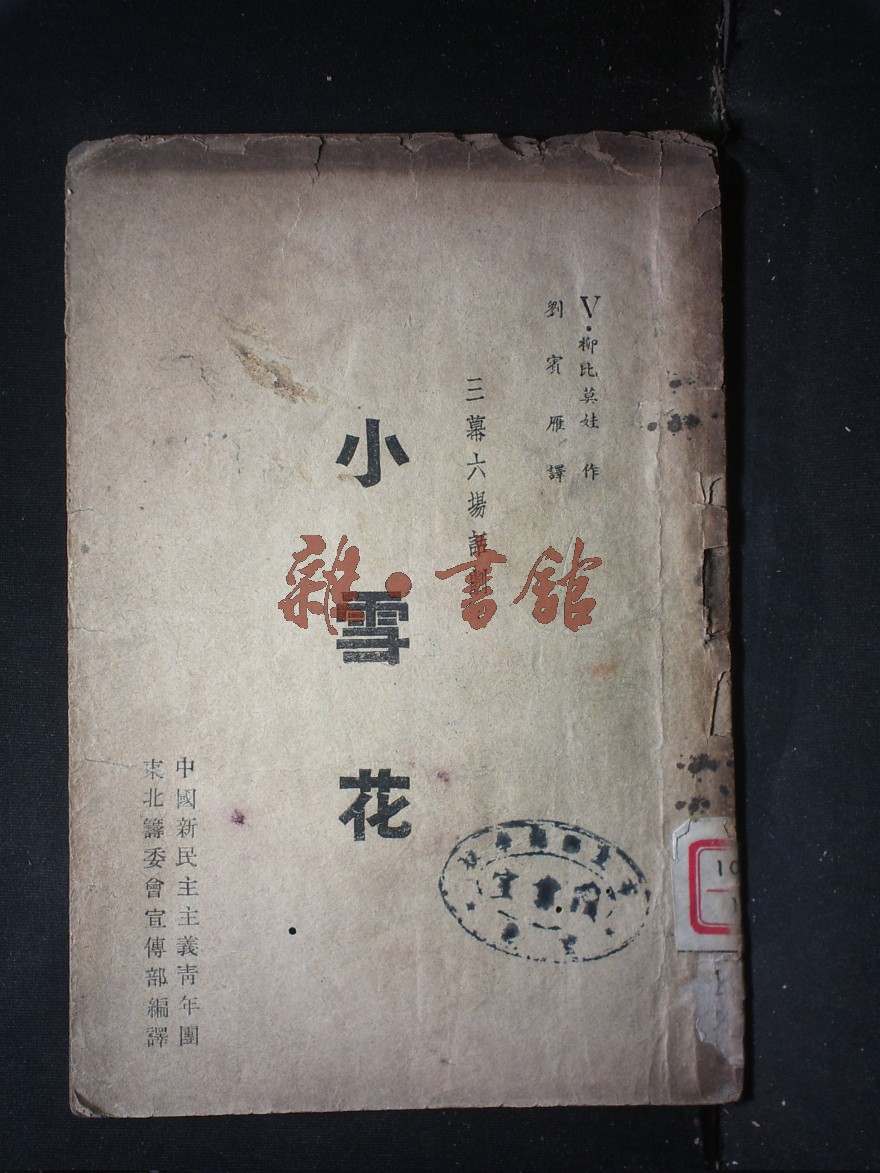 V·柳比莫娃 作
劉賓雁 譯
三幕六場話劇
小雪花
中國新民主主義青年團
東北籌委會宣傳部編譯
雜·書館
圖書室
10
一
1